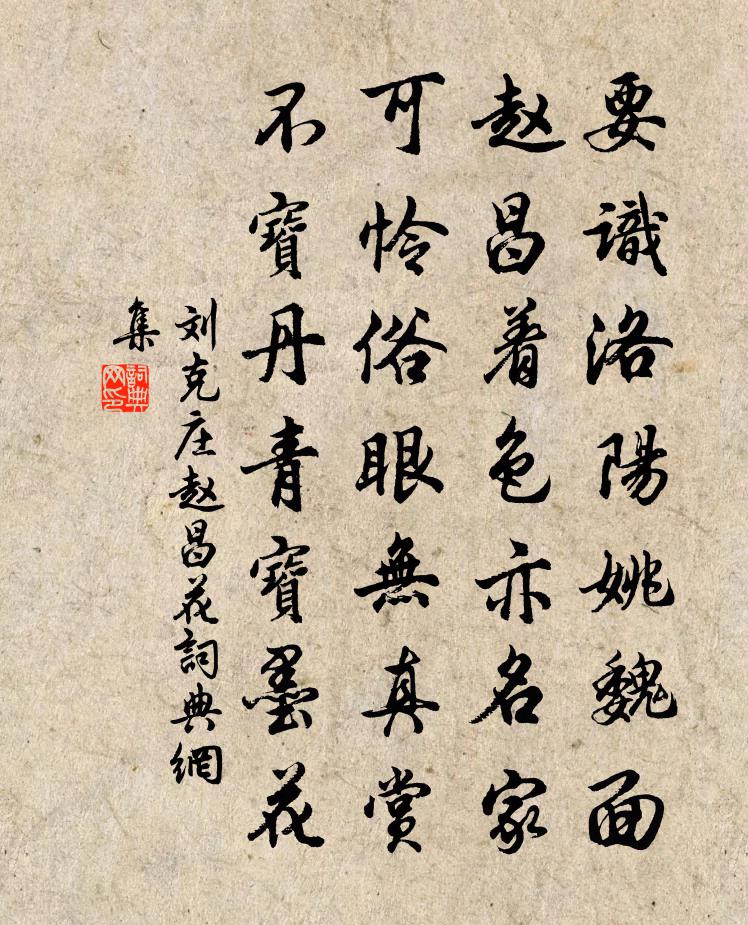 要識洛陽姚魏面
赵昌着色亦名家
可怜俗眼無真赏
不寶丹青寶墨花
刘克庄赵昌花詞典網
集
詞典
网印